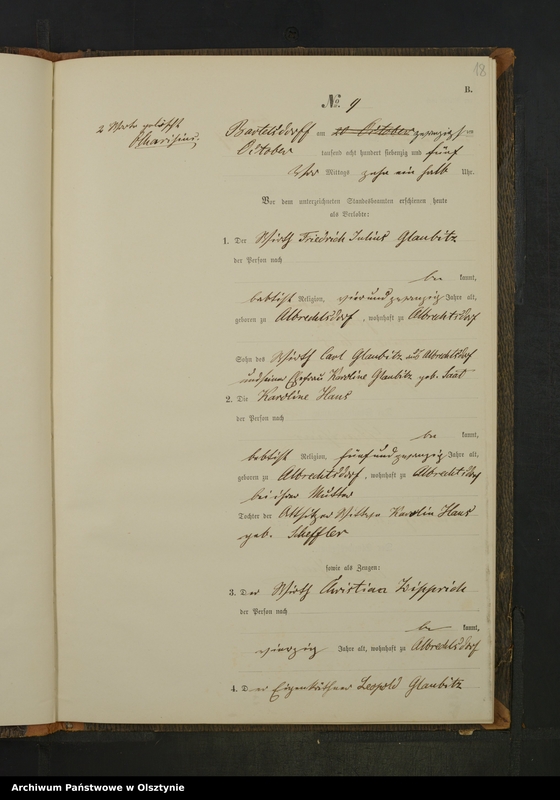 18
B.
No. 9
2 Worte gelöscht
Bartelsdorff am 20 October zwanzigsten
October tausend acht hundert siebenzig und fünf
Vor Mittags zehn ein halb Uhr.
Vor dem unterzeichneten Standesbeamten erschienen heute
als Verlobte:
1. Der Wirth Friedrich Julius Glaubitz
der Person nach
be kannt,
Religion, vier und zwanzig Jahre alt,
geboren zu Albrechtsdorf, wohnhaft zu Albrechtsdorf
Sohn des Wirth Carl Glaubitz aus Albrechtsdorf
und seiner Ehefrau Karoline Glaubitz geb. Saat
2. Die Karoline Haus
der Person nach
be kannt,
Religion, fünf und zwanzig Jahre alt,
geboren zu Albrechtsdorf, wohnhaft zu Albrechtsdorf
bei ihrer Mutter
Tochter der Altsitzer Wittwe Karolin Haus
geb. Scheffler
sowie als Zeugen:
3. Der Wirth Christian Zipprich
der Person nach
be kannt,
vierzig Jahre alt, wohnhaft zu Albrechtsdorf
4. Der Eigenkäthner Leopold Glaubitz
Archiwum Państwowe w Olsztynie